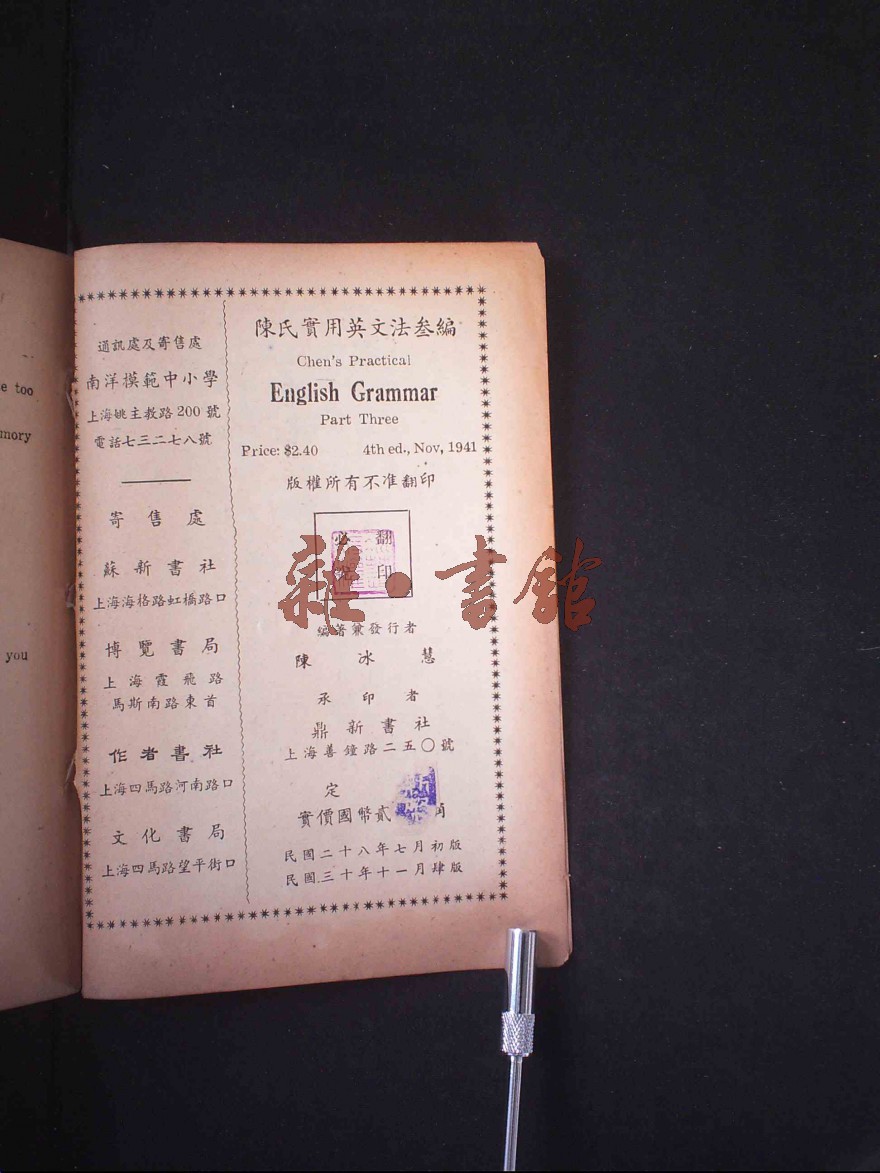 e too
mory
you
通訊處及寄售處
南洋模範中小學
上海姚主教路 200 號
電話七三二七八號
寄售處
蘇新書社
上海海格路虹橋路口
博覽書局
上海霞飛路
馬斯南路東首
作者書社
上海四馬路河南路口
文化書局
上海四馬路望平街口
陳氏實用英文法叁編
Chen's Practical
English Grammar
Part Three
Price: $2.40 4th ed., Nov, 1941
版權所有不准翻印
翻印必
雜·書館
編著兼發行者
陳冰慧
承印者
鼎新書社
上海善鐘路二五〇號
定
實價國幣貳角
民國二十八年七月初版
民國三十年十一月肆版